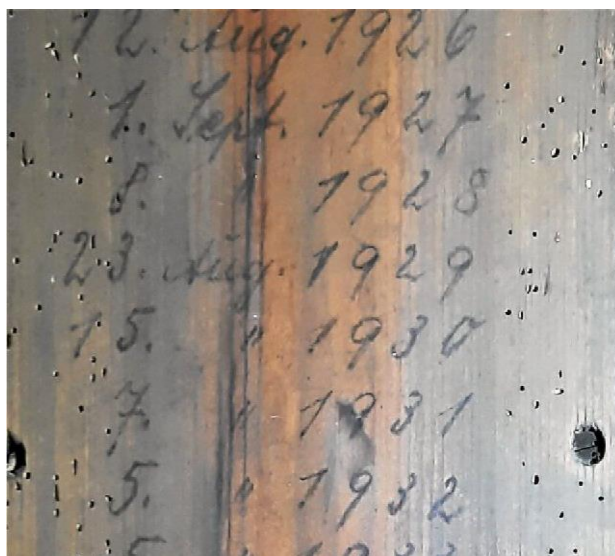 12. Aug. 1926
1. Sept. 1927
8. " 1928
23. Aug. 1929
15. " 1930
7. " 1931
5. " 1932
5. " 1933